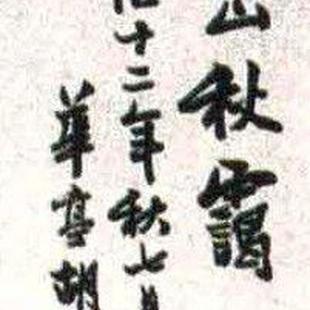 山秋靄
十二年秋七月
華亭胡